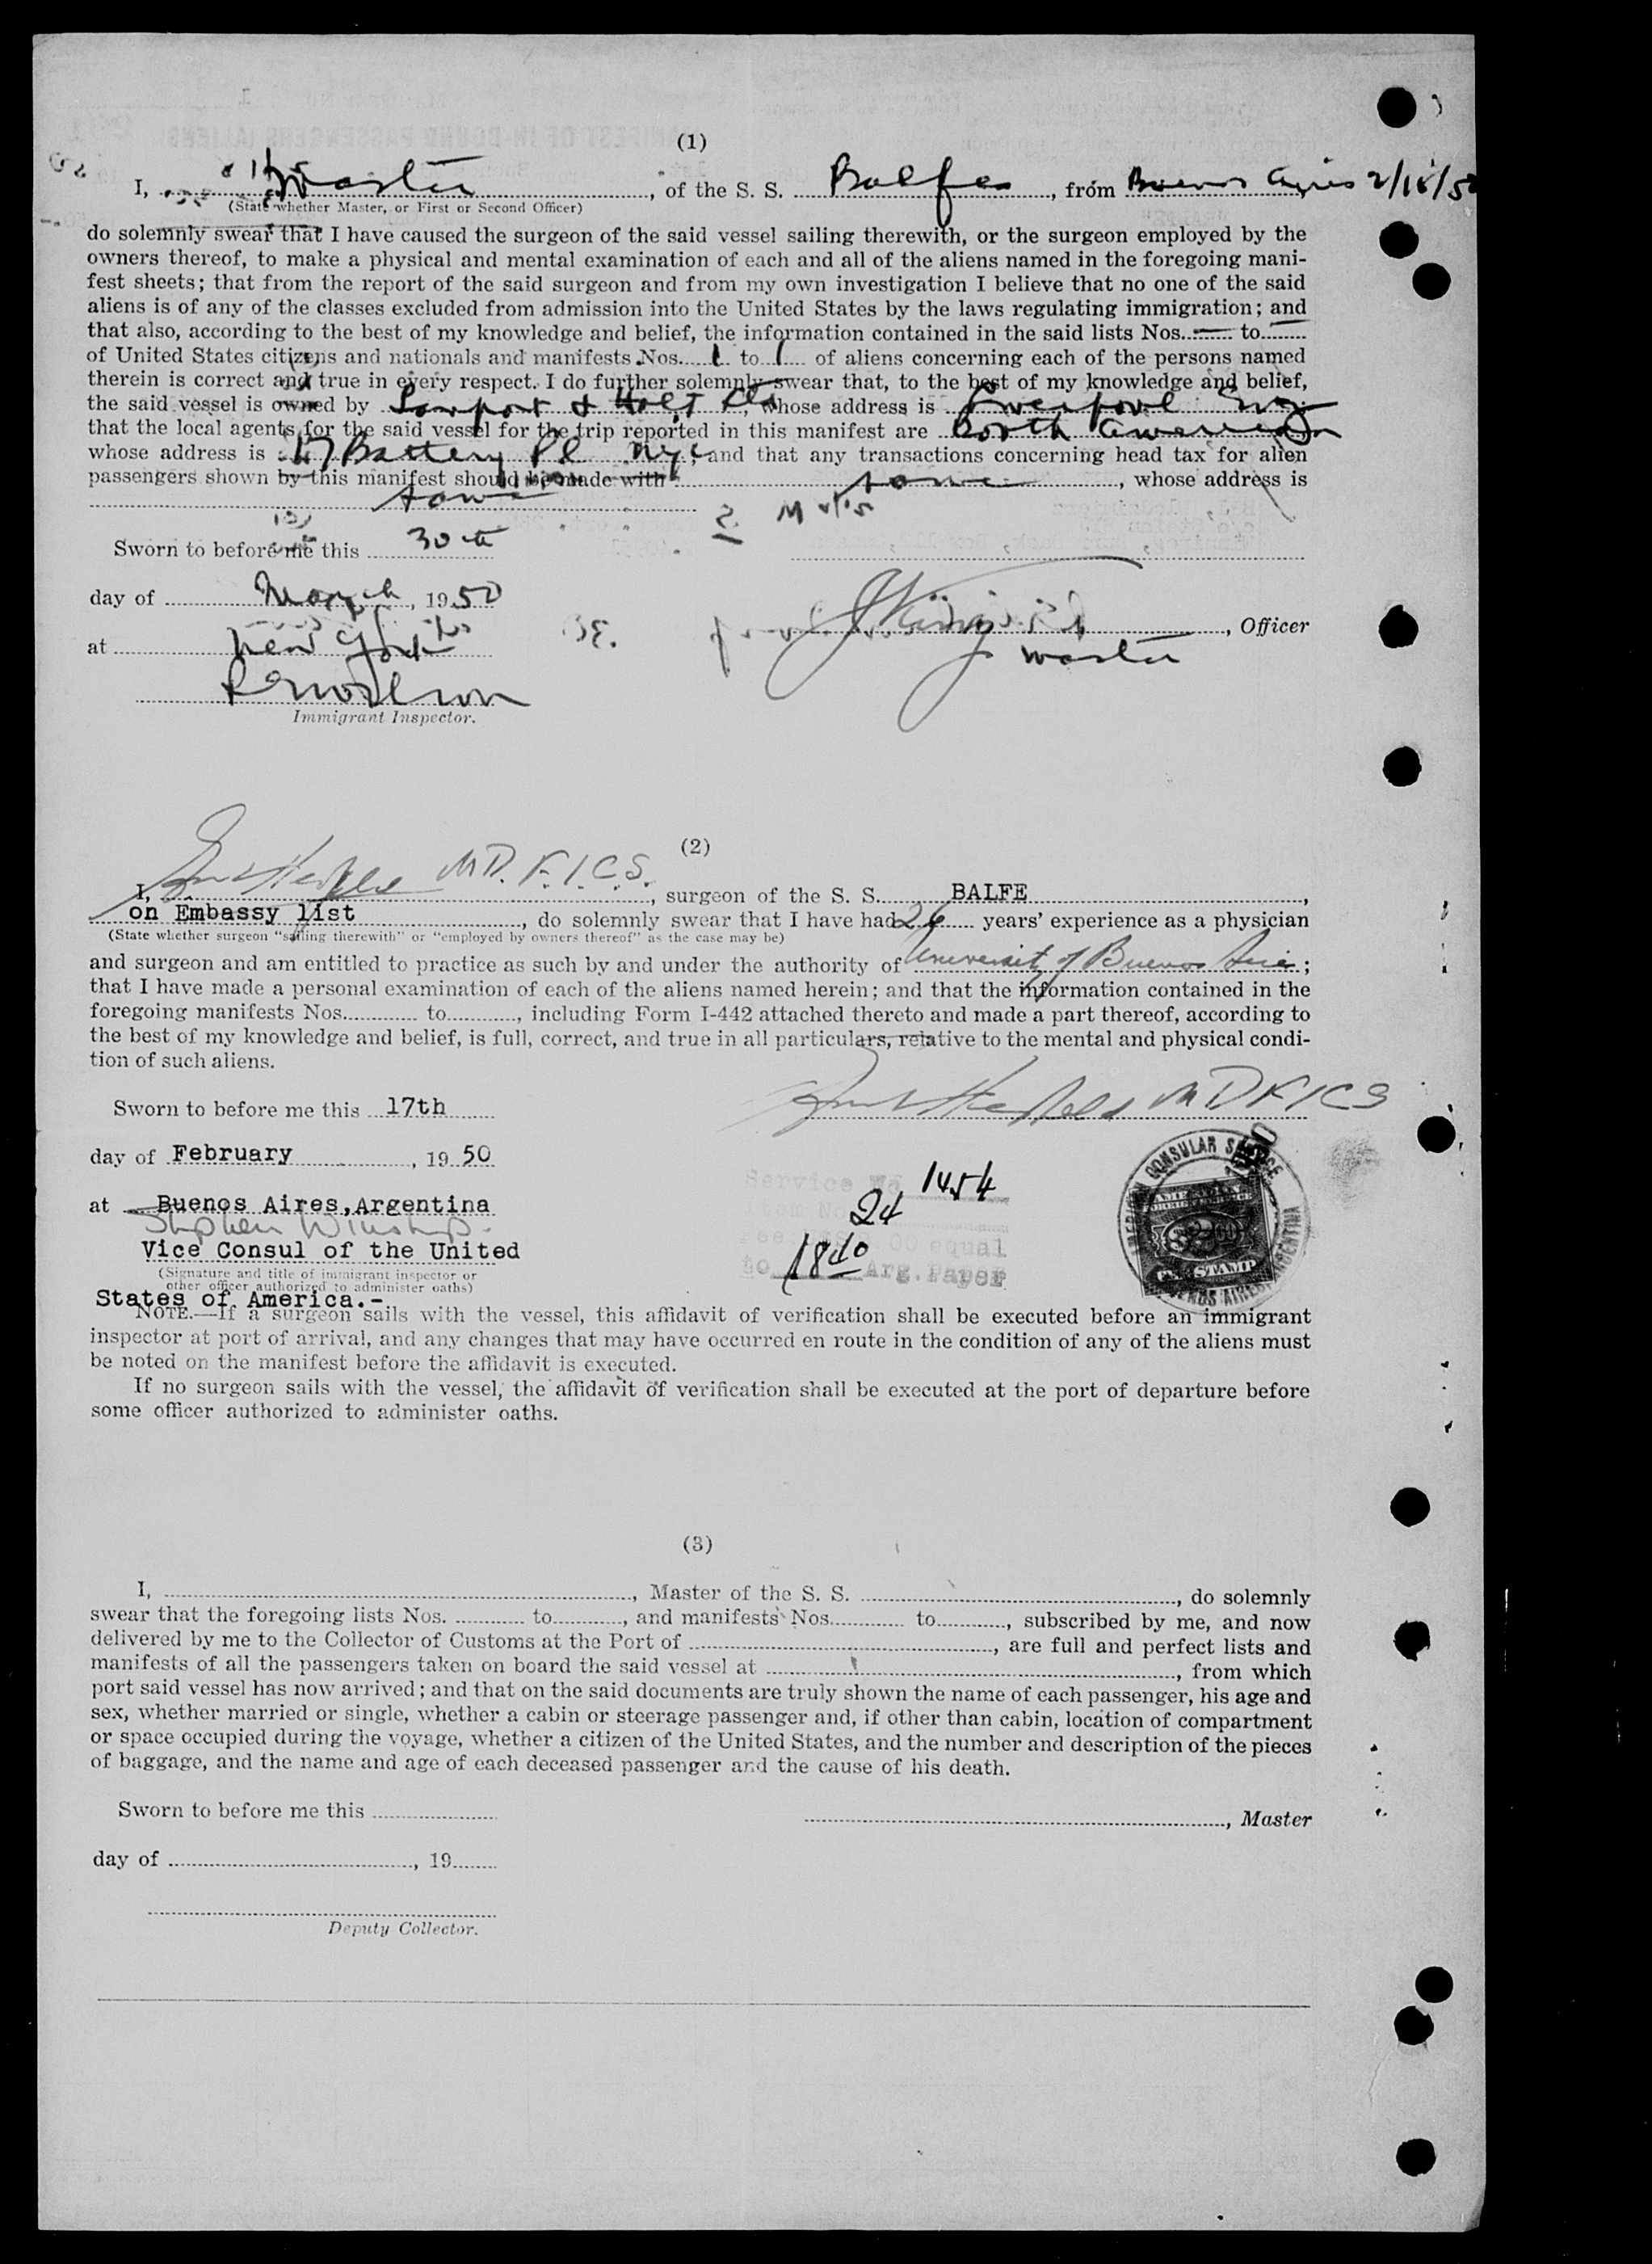 (1)
I, Master, of the S. S. Balfe, from Buenos Aires 2/18/50
(State whether Master, or First or Second Officer)
do solemnly swear that I have caused the surgeon of the said vessel sailing therewith, or the surgeon employed by the
owners thereof, to make a physical and mental examination of each and all of the aliens named in the foregoing mani-
fest sheets; that from the report of the said surgeon and from my own investigation I believe that no one of the said
aliens is of any of the classes excluded from admission into the United States by the laws regulating immigration; and
that also, according to the best of my knowledge and belief, the information contained in the said lists Nos. — to —
of United States citizens and nationals and manifests Nos. 1 to 1 of aliens concerning each of the persons named
therein is correct and true in every respect. I do further solemnly swear that, to the best of my knowledge and belief,
the said vessel is owned by Lamport & Holt Ltd, whose address is Liverpool Eng
that the local agents for the said vessel for the trip reported in this manifest are North American
whose address is 17 Battery Pl NYC, and that any transactions concerning head tax for alien
passengers shown by this manifest should be made with same, whose address is
same
Sworn to before me this 30th
day of March, 1950
at New York
Officer
Master
Immigrant Inspector.
(2)
I, M.D. F.I.C.S., surgeon of the S. S. BALFE,
on Embassy list, do solemnly swear that I have had 26 years' experience as a physician
(State whether surgeon "sailing therewith" or "employed by owners thereof" as the case may be)
and surgeon and am entitled to practice as such by and under the authority of University of Buenos Aires;
that I have made a personal examination of each of the aliens named herein; and that the information contained in the
foregoing manifests Nos. to, including Form I-442 attached thereto and made a part thereof, according to
the best of my knowledge and belief, is full, correct, and true in all particulars, relative to the mental and physical condi-
tion of such aliens.
Sworn to before me this 17th
MD FICS
day of February, 1950
at Buenos Aires, Argentina
Stephen Winship
Vice Consul of the United
(Signature and title of immigrant inspector or
other officer authorized to administer oaths)
States of America.-
Service No 1454
Item No 24
equal
to 18.40 Arg. Paper
AMERICAN CONSULAR SERVICE
BUENOS AIRES, ARGENTINA
STAMP
NOTE.—If a surgeon sails with the vessel, this affidavit of verification shall be executed before an immigrant
inspector at port of arrival, and any changes that may have occurred en route in the condition of any of the aliens must
be noted on the manifest before the affidavit is executed.
If no surgeon sails with the vessel, the affidavit of verification shall be executed at the port of departure before
some officer authorized to administer oaths.
(3)
I, , Master of the S. S. , do solemnly
swear that the foregoing lists Nos. to, and manifests Nos. to, subscribed by me, and now
delivered by me to the Collector of Customs at the Port of , are full and perfect lists and
manifests of all the passengers taken on board the said vessel at , from which
port said vessel has now arrived; and that on the said documents are truly shown the name of each passenger, his age and
sex, whether married or single, whether a cabin or steerage passenger and, if other than cabin, location of compartment
or space occupied during the voyage, whether a citizen of the United States, and the number and description of the pieces
of baggage, and the name and age of each deceased passenger and the cause of his death.
Sworn to before me this
, Master
day of , 19
Deputy Collector.